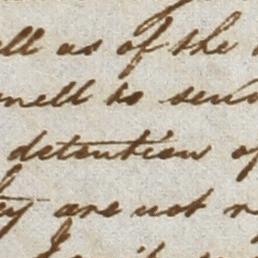 ell as of the
nell to send
detention of
ty are not r